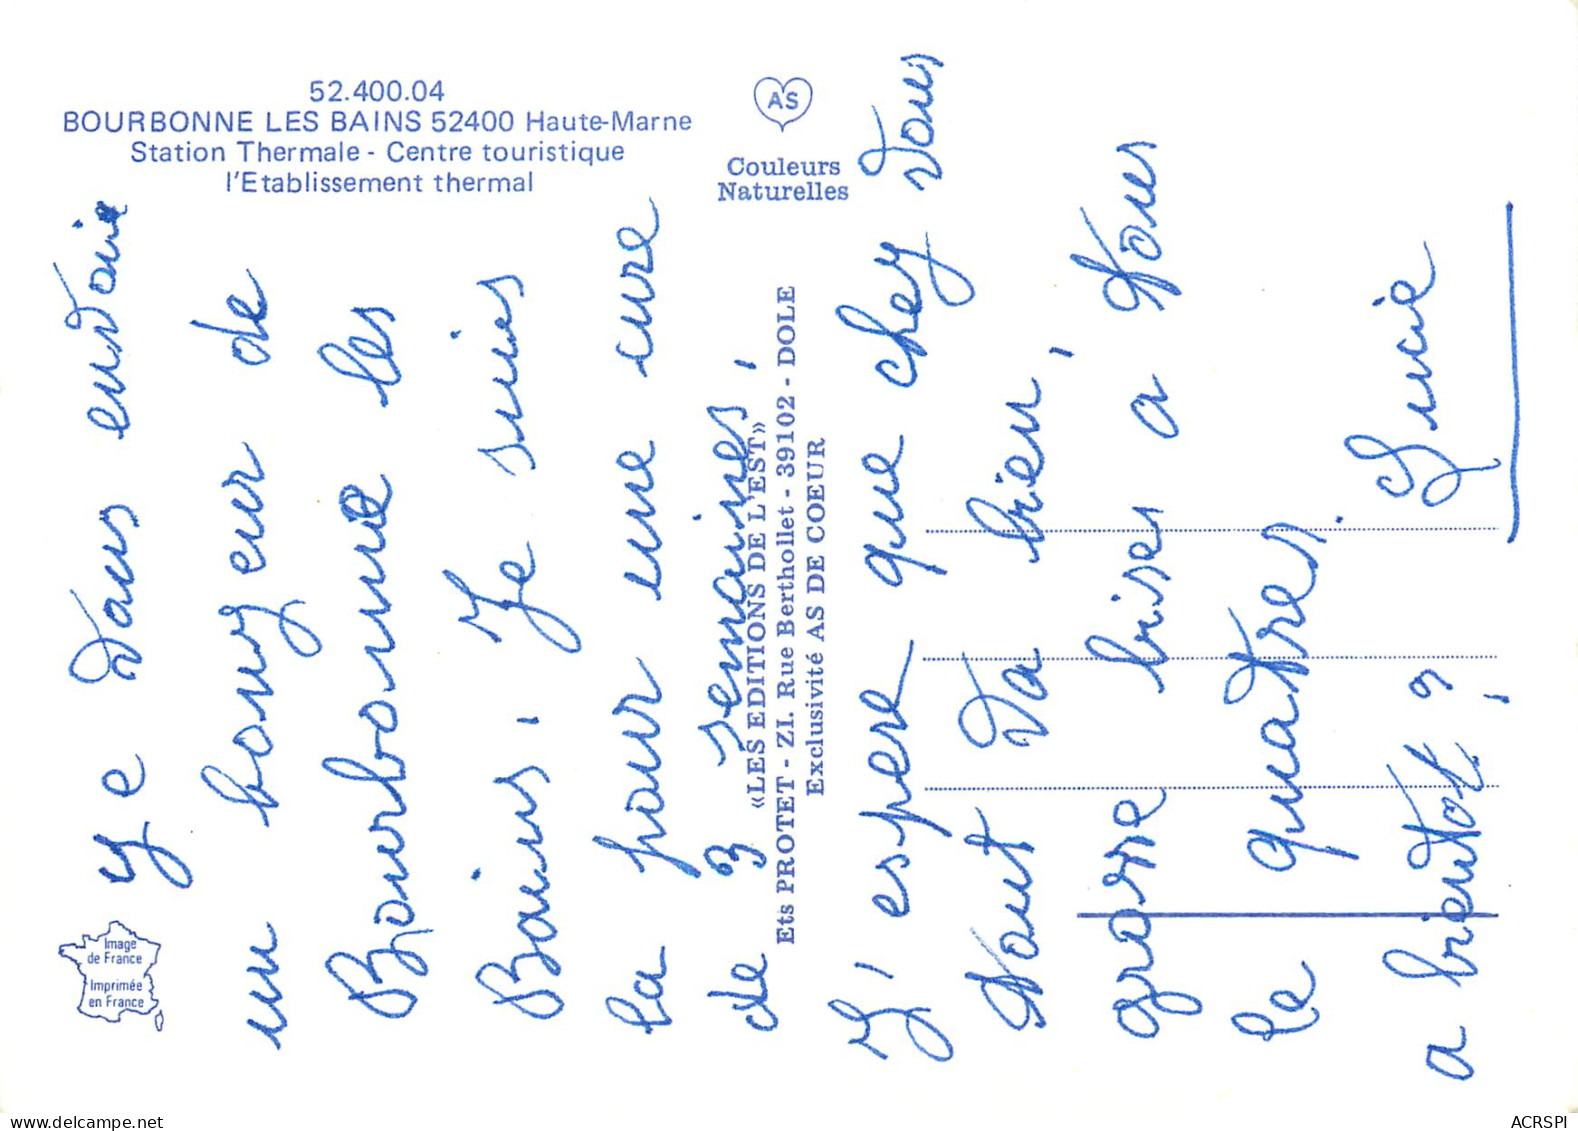 52.400.04
BOURBONNE LES BAINS 52400 Haute-Marne
Station Thermale - Centre touristique
l'Etablissement thermal
AS
Couleurs
Naturelles
Image
de France
Imprimée
en France
«LES EDITIONS DE L'EST»
Ets PROTET - ZI. Rue Berthollet - 39102 - DOLE
Exclusivité AS DE COEUR
Je vous envoie
un bonjeur de
Bourbonne les
Bains, Je suies
la pour une cure
de 3 semaines,
J'espere que chez vous
tout va bien,
grosse bises a vous
le quatres.
a bientot ?,
Lucie
ACRSPI